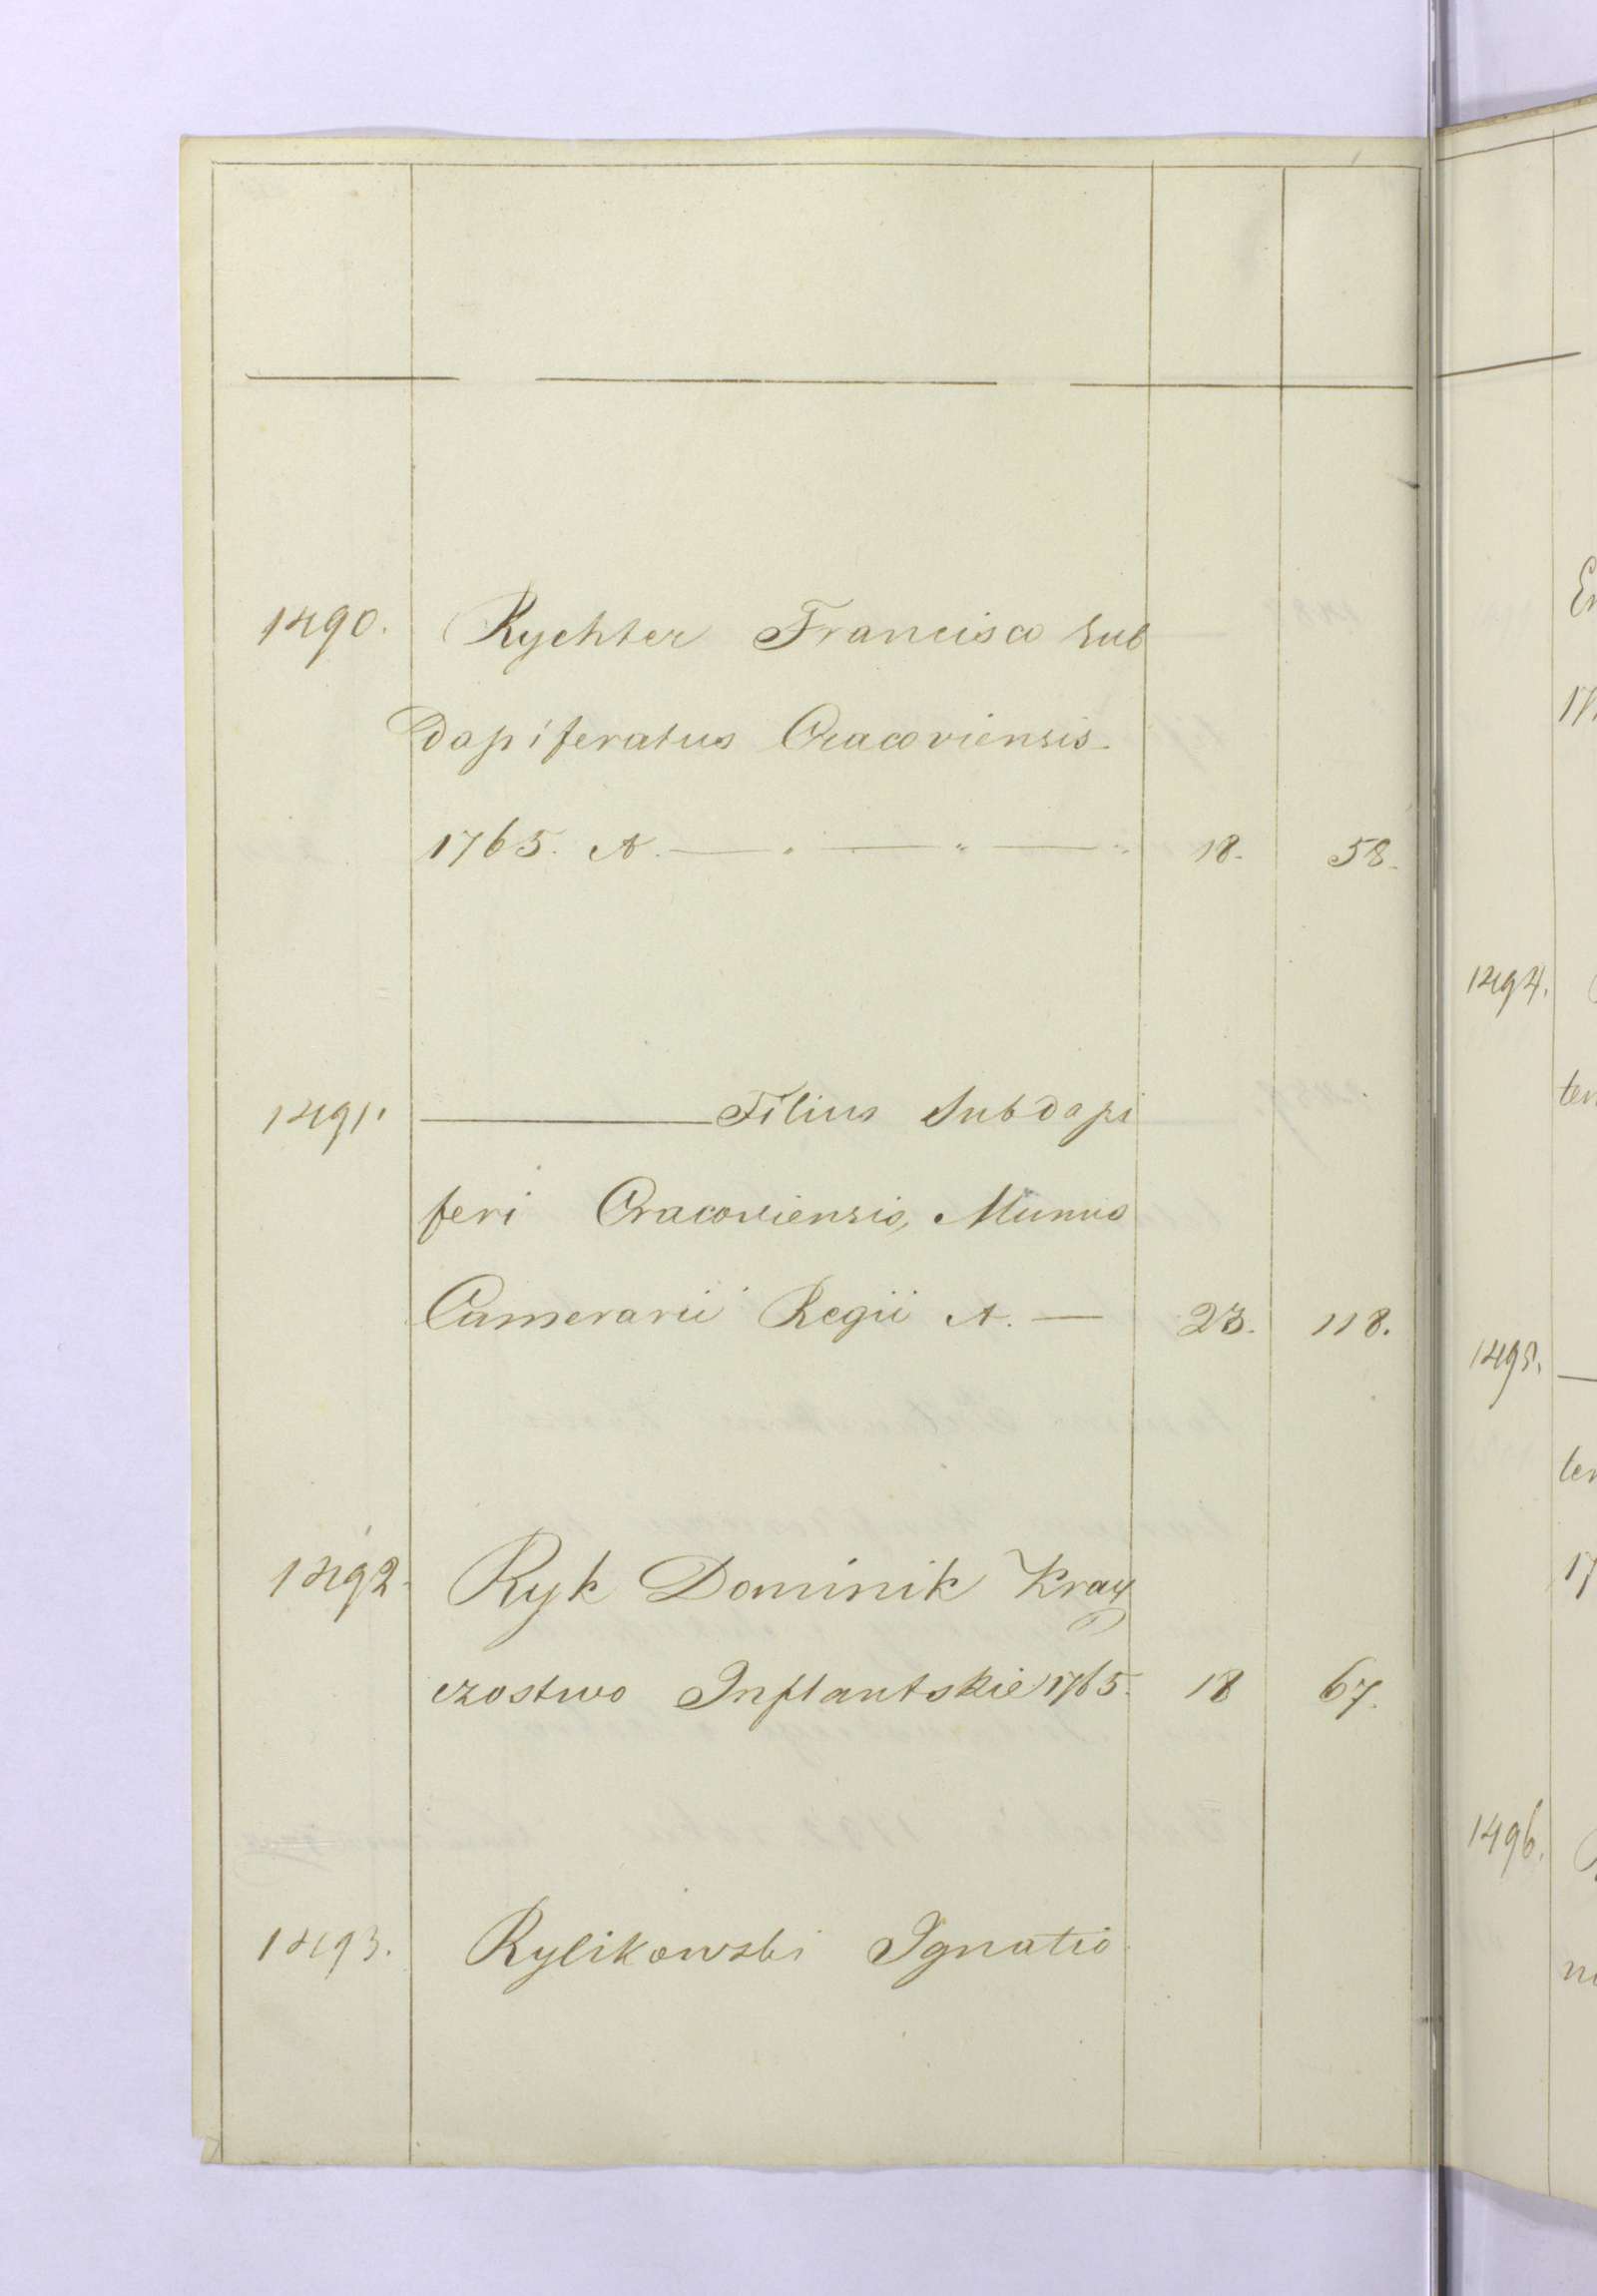 1490. Rychter Francisco Sub
dapiferatus Cracoviensis.
1765. A. — . — " — " 18. 58.
1491. — Filius Subdapi
feri Cracoviensis, Munus
Camerarii Regii A. — 23. 118.
1492. Ryk Dominik Kray
czostwo Inflantskie 1765. 18 67.
1493. Rylikowski Ignatio
17
1494.
ten
1495.
17
1496.